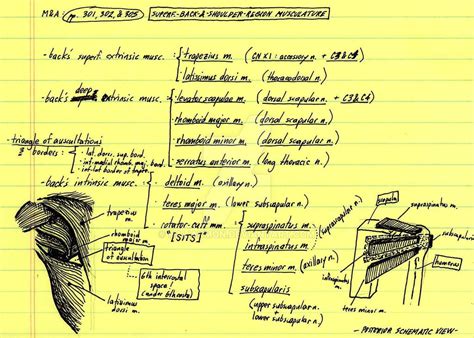 M&A: pp. 301, 302, & 303 SUPERF. BACK & SHOULDER REGION MUSCULATURE
-back's superf. extrinsic musc.: trapezius m. (CN XI: accessory n. + C3 & C4)
latissimus dorsi m. (thoracodorsal n.)
-back's deep extrinsic musc.: levator scapulae m. (dorsal scapular n. + C3 & C4)
rhomboid major m. (dorsal scapular n.)
-triangle of auscultations
3 borders:
· lat. dorsi. sup. bord.
· inf-medial rhomb. maj. bord.
· inf-lat border of trapez.
rhomboid minor m. (dorsal scapular n.)
serratus anterior m. (long thoracic n.)
-back's intrinsic musc.: deltoid m. (axillary n.)
teres major m. (lower subscapular n.)
rotator-cuff mm.
"[SITS]"
supraspinatus m.
infraspinatus m.
(suprascapular n.)
teres minor m. (axillary n.)
subscapularis
(upper subscapular n. +
lower subscapular n.)
trapezius m.
rhomboid major m.
triangle of auscultation
6th intercostal space!
(under 6th costa)
latissimus dorsi m.
scapula
supraspinatus m.
subscapularis m.
humerus
infraspinatus m.
teres minor m.
- POSTERIOR SCHEMATIC VIEW -